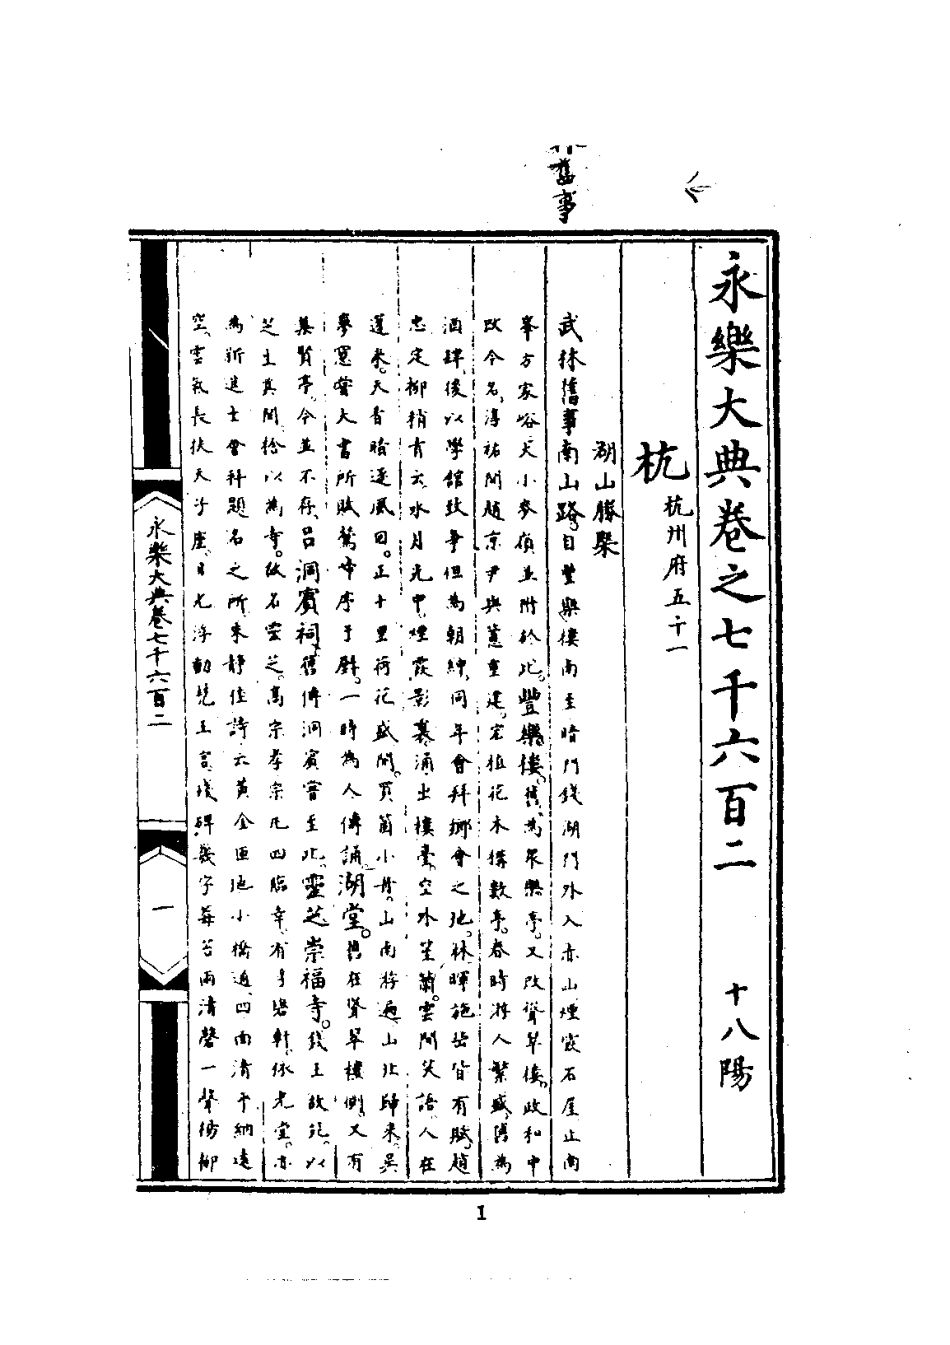 舊事
永樂大典卷之七千六百二 十八陽
杭 杭州府五十一
湖山勝槩
武林舊事南山路。自豐樂樓南至暗門錢湖門外入赤山煙霞石屋止南
峯方家峪大小麥嶺並附於此。豐樂樓。舊為衆樂亭。又改聳翠樓。政和中
改今名。淳祐間趙京尹與𥲅重建。宏植花木構數亭。春時游人繁盛。舊為
酒肆。後以學館致爭但為朝紳同年會拜鄉會之地。林暉施岳皆有賦。趙
忠定柳稍青云水月光中。煙霞影裏涌出樓臺。空外笙簫。雲間笑語。人在
蓬萊。天香暗逐風回。正十里荷花盛開。買箇小舟。山南游遍。山北歸來。吳
夢窗嘗大書所賦鶯啼序于壁。一時為人傳誦。湖堂。舊在聳翠樓側。又有
集賢亭。今並不存。呂洞賓祠。舊傳洞賓嘗至此。靈芝崇福寺。錢王故苑。以
芝生其間捨以為寺。故名靈芝。高宗孝宗凡四臨幸。有浮碧軒。依光堂。亦
為新進士會科題名之所。朱靜佳詩云黃金匝地小橋通。四面清平納遠
空。雲氣長扶天子座。日光浮動梵王宮。殘碑幾字莓苔雨清磬一聲楊柳
永樂大典卷七千六百二
一
1